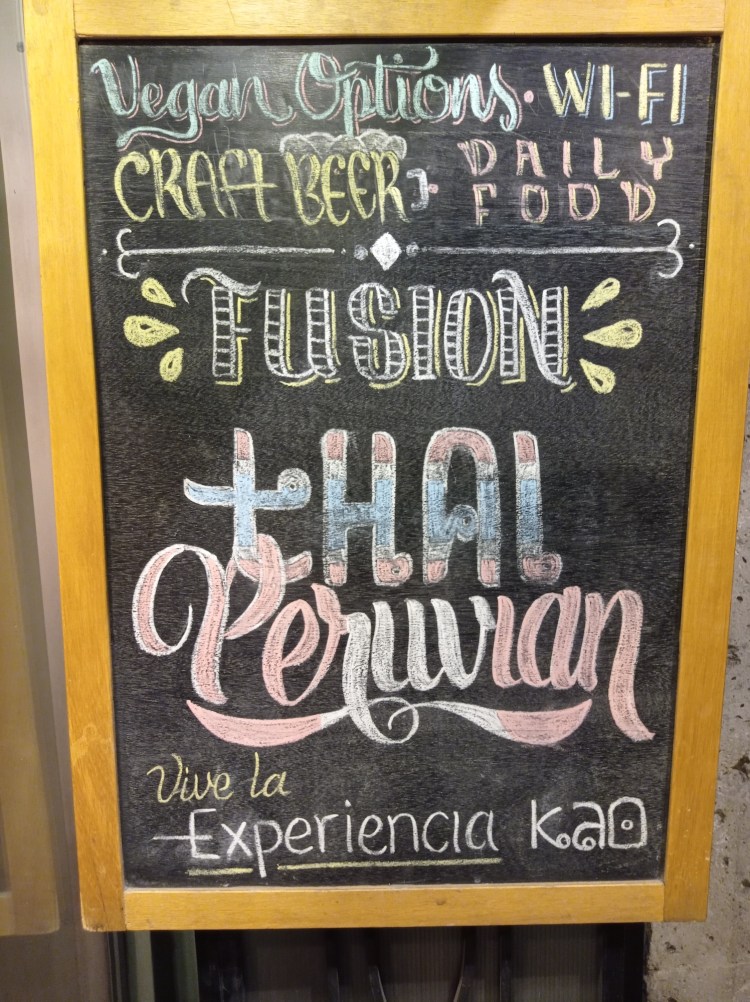 Vegan Options · WI-FI
CRAFT BEER · DAILY FOOD
FUSION
tHAI
Peruvian
Vive la
Experiencia KaO